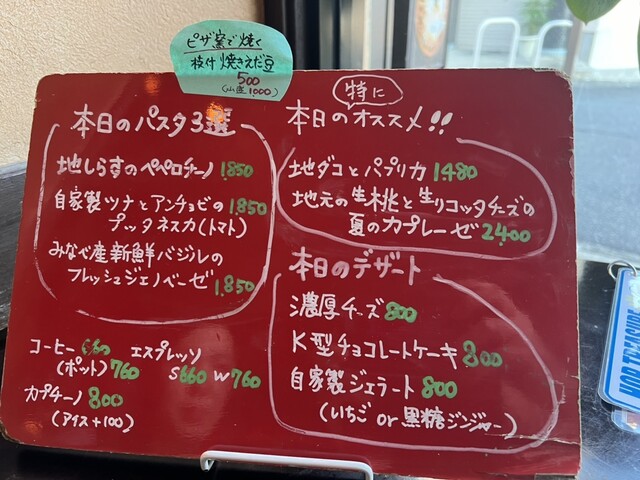 ピザ窯で焼く
枝付 焼きえだ豆
500
(山盛1000)
本日のパスタ3選
地しらすのペペロチーノ 1850
自家製ツナとアンチョビの 1,850
プッタネスカ(トマト)
みなべ産新鮮バジルの
フレッシュジェノベーゼ 1,850
コーヒー 660 エスプレッソ
(ポット)760 S660 W760
カプチーノ 800
(アイス+100)
特に
本日のオススメ!!
地ダコとパプリカ 1480
地元の生桃と生リコッタチーズの
夏のカプレーゼ 2400
本日のデザート
濃厚チーズ 800
K型チョコレートケーキ 800
自家製ジェラート 800
(いちご or 黒糖ジンジャー)